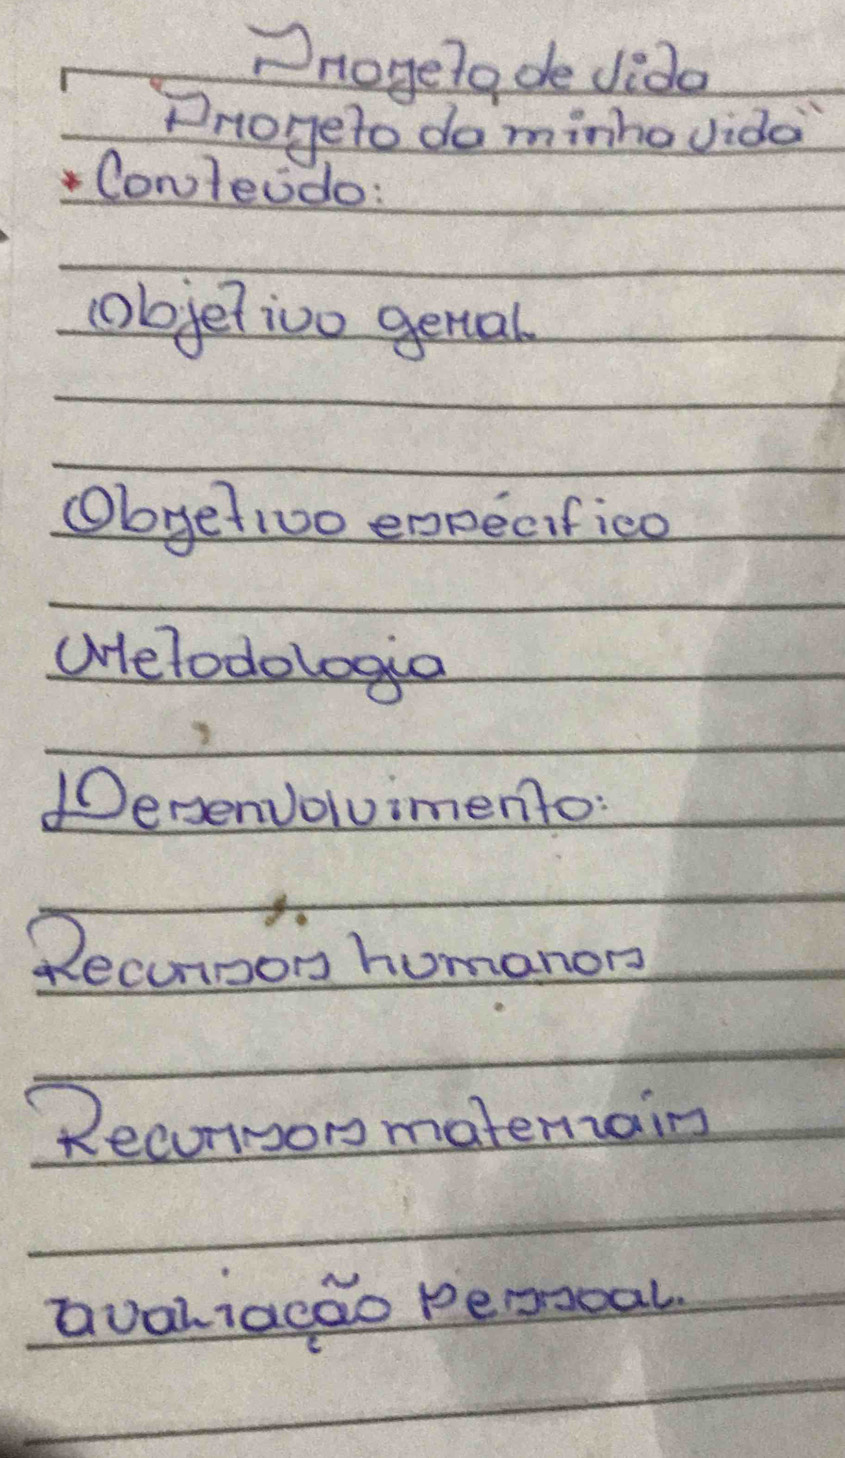 Progeto de vida
"Progeto da minha vida"
* Conteúdo:
Objetivo geral
Obgetivo espécifico
Metodologia
Desenvolvimento:
Recursos humanos
Recursos materiais
avaliação pessoal.